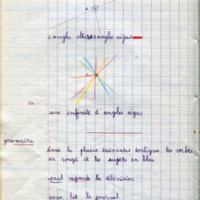 angle obtus angle aigu
une infinité d'angles aigus
grammaire
dans les phrases suivantes souligne les verbes
en rouge et les sujets en bleu
paul regarde la télévision
papa lit le journal